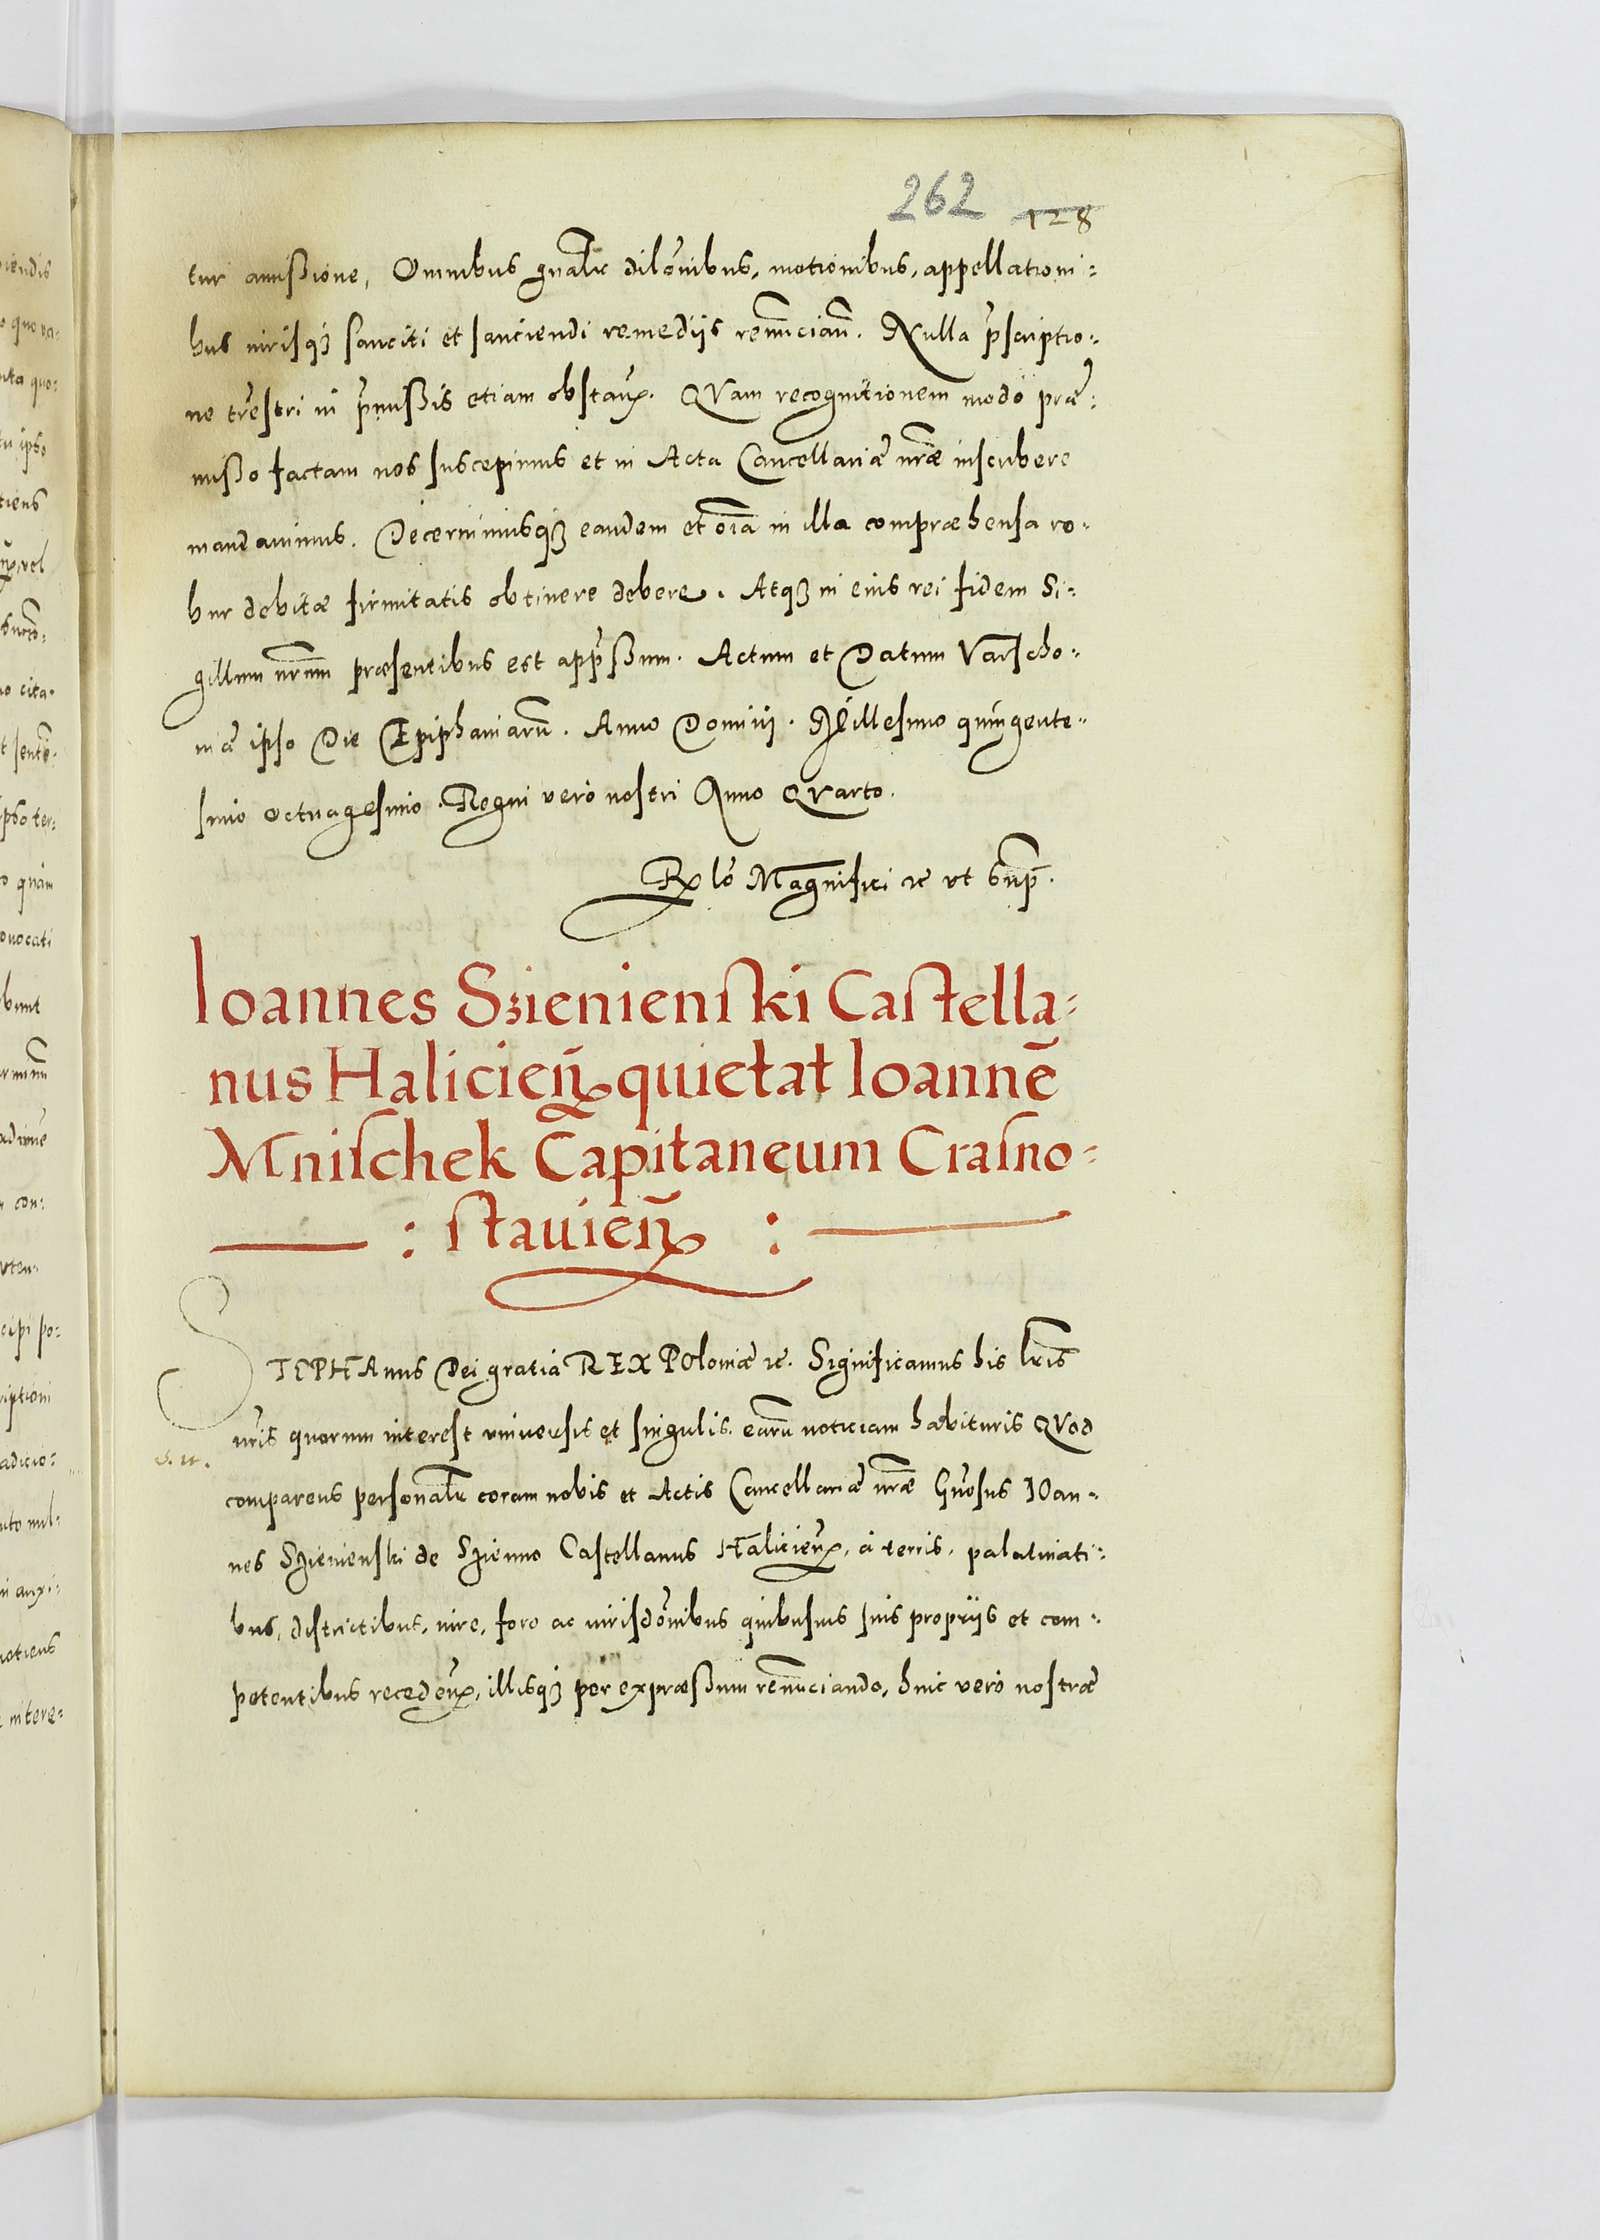 262 128
tur amissione, Omnibus gnalr dilonibus, motionibus, appellationi-
bus iurisq3 sanciti et sanciendi remedijs renuncian. Nulla pscriptio-
ne trestri in pmissis etiam obstan. QVam recognitionem modo præ-
misso factam nos suscepimus et in Acta Cancellariæ nræ inscribere
mandauimus. Decernimusq3 eandem et oia in illa compræhensa ro-
bur debitæ firmitatis obtinere debere. Atq3 in eius rei fidem Si-
gillum nrum præsentibus est appssum. Actum et Datum Varscho-
uiæ ipso Die Epiphaniarū. Anno Domini. Millesimo quingente-
simo octuagesimo. Regni vero nostri Anno QVarto.
Rlō Magnifici etc vt Sup.
Ioannes Szienienski Castella-
nus Halicien̄ quietat Ioannē
Mnischek Capitaneum Crasno-
: stavien̄ :
STEPHAnus Dei gratia REX POloniæ etc. Significamus his lris
nris quorum interest vniuersis et singulis earū noticiam habituris QVod
comparens personalr coram nobis et Actis Cancellariæ nræ Gnosus IOan-
nes Szienienski de Szienno Castellanus Halicien̄, à terris, palatinati-
bus, districtibus, iure, foro ac iurisdōnibus quibusuis suis proprijs et com-
petentibus receden̄, illisq3 per expræssum renunciando, huic vero nostræ